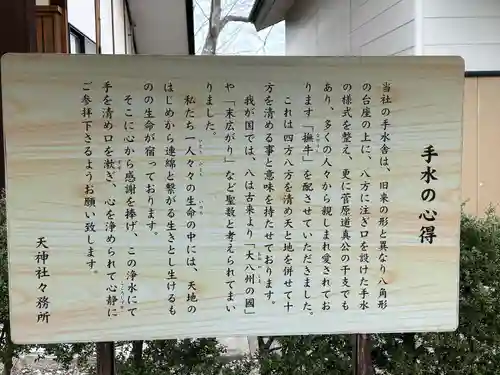 手水の心得
当社の手水舎は、旧来の形と異なり八角形
の台座の上に、八方に注ぎ口を設けた手水
の様式を整え、更に菅原道真公の干支でも
あり、多くの人々から親しまれ愛されてお
ります「撫牛」を配させていただきました。
これは四方八方を清め天と地を併せて十
方を清める事と意味を持たせております。
我が国では、八は古来より「大八州の國」
や「末広がり」など聖数と考えられてまい
りました。
私たち一人々々の生命の中には、天地の
はじめから連綿と繋がる生きとし生けるも
のの生命が宿っております。
そこに心から感謝を捧げ、この浄水にて
手を清め口を漱ぎ、心を浄められて心静に
ご参拝下さるようお願い致します。
天神社々務所